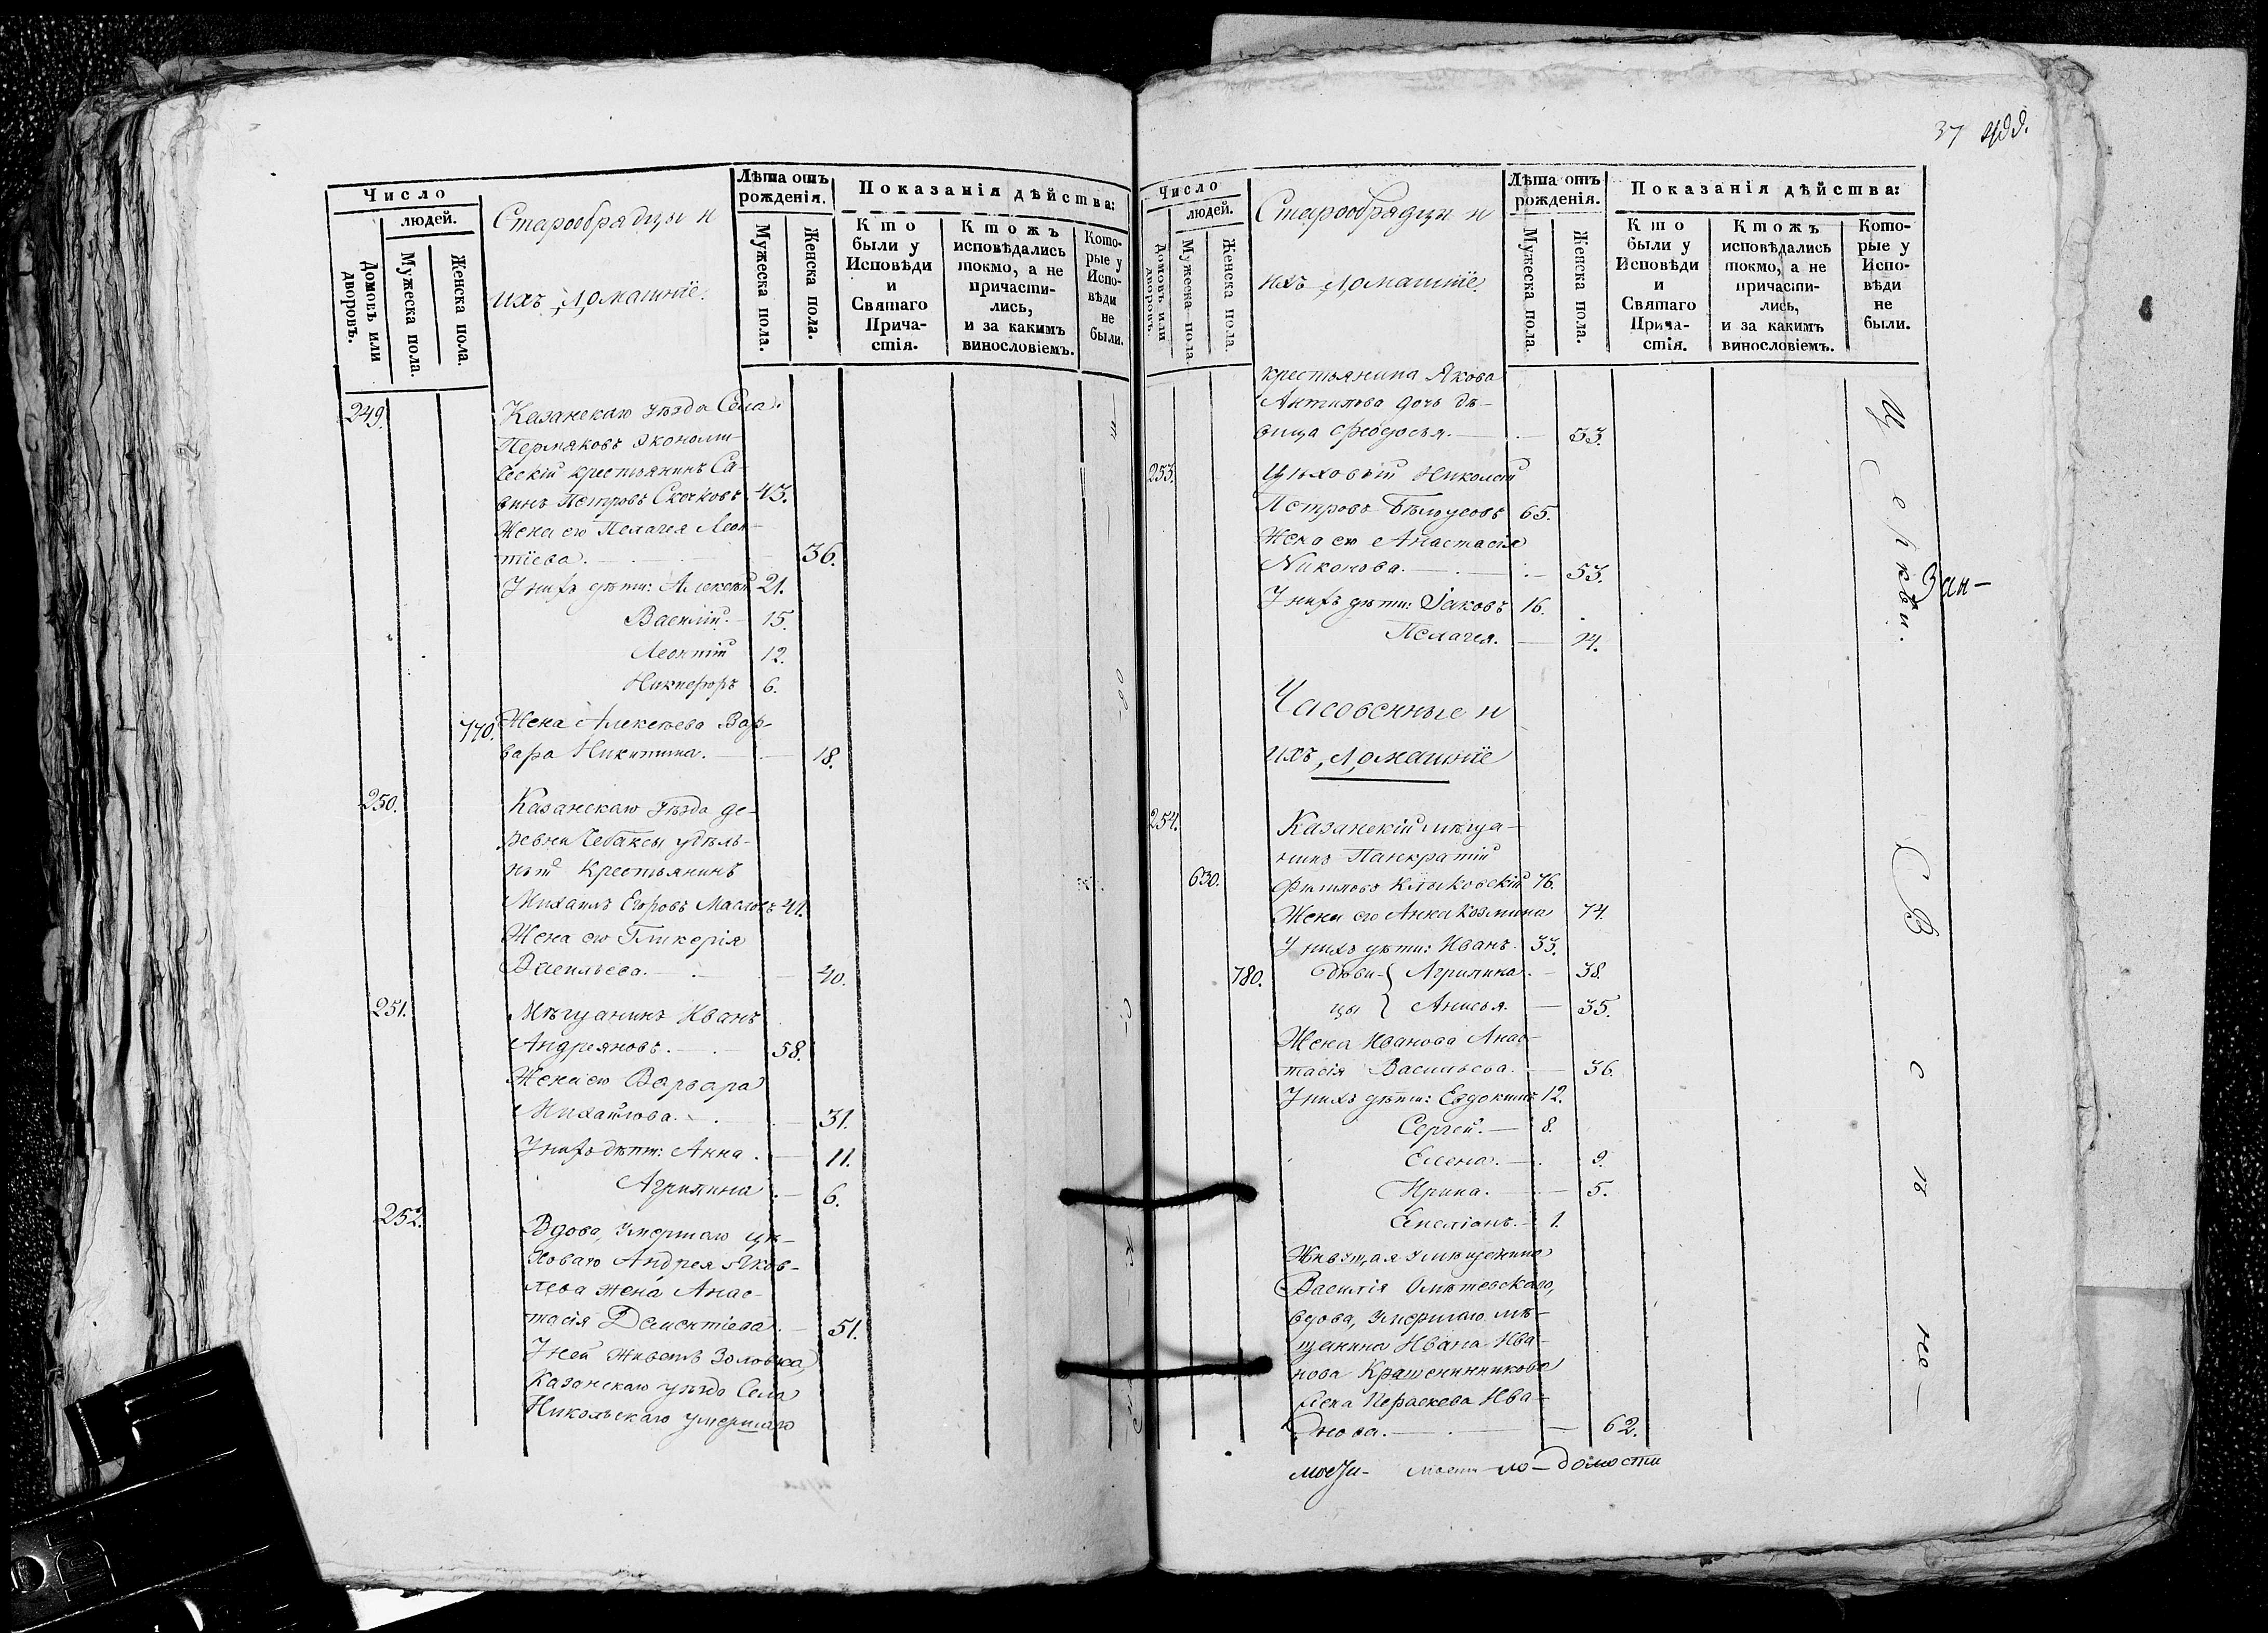 37
Число
людей.
Домовъ или дворовъ.
Мужеска пола.
Женска пола.
Старообрядцы и
ихъ Домашніе.
Лѣта отъ рожденія.
Мужеска пола.
Женска пола.
Показанія дѣйства:
Кто были у Исповѣди и Святаго Причастія.
Ктожъ исповѣдались токмо, а не причастились, и за какимъ винословіемъ.
Которые у Исповѣди не были.
249. Казанскаго уѣзда Села
Пермяковъ Экономи-
ческій крестьянинъ Са-
винъ Петровъ Скочковъ 43.
Жена его Пелагея Леон-
тіева. 36.
У нихъ дѣти: Алексѣй 21.
Василій. 15.
Леонтій 12.
Никифоръ 6.
770. Жена Алексѣева Вар-
вара Никитина. 18.
250. Казанскаго уѣзда де-
ревни Чебаксы удѣль-
ный Крестьянинъ
Михаилъ Егоровъ Масловъ 41.
Жена его Гликерія
Васильева. 40.
251. Мѣщанинъ Иванъ
Андреяновъ. 58.
Жена его Варвара
Михайлова. 31.
У нихъ дѣти: Анна. 11.
Агрипина 6.
252. Вдова, умершаго цѣ-
ховаго Андрея Яков-
лева жена Анас-
тасія Дементіева. 51.
У ней живетъ Золовка,
Казанскаго уѣзда Села
Никольскаго умершаго
Число
людей.
Домовъ или дворовъ.
Мужеска пола.
Женска пола.
Старообрядцы и
ихъ Домашніе.
Лѣта отъ рожденія.
Мужеска пола.
Женска пола.
Показанія дѣйства:
Кто были у Исповѣди и Святаго Причастія.
Ктожъ исповѣдались токмо, а не причастились, и за какимъ винословіемъ.
Которые у Исповѣди не были.
крестьянина Якова
Антипова дочь дѣ-
вица Ѳеодосья. 33.
253. Цѣховый Николай
Петровъ Бѣлоусовъ 65.
Жена его Анастасія
Никонова. 53.
У нихъ дѣти: Іаковъ 16.
Пелагея. 14.
Часовенные и
ихъ Домашніе
254. Казанскій мѣща-
нинъ Панкратій
630. Филиповъ Клыковскій 76.
Жена его Анна Козмина 74.
У нихъ дѣти: Иванъ. 33.
780. Дѣви- Агрипина. 38.
цы Анисья. 35.
Жена Иванова Анас-
тасія Васильева. 36.
У нихъ дѣти: Евдокимъ 12.
Сергей. 8.
Елена. 9.
Ирина. 5.
Емеліанъ. 1.
Живущая у мѣщанина
Василія
вдова, умершаго мѣ-
щанина Ивана Ива-
нова Крашенинникова
жена Параскева Ива-
нова. 62.
Церкви.